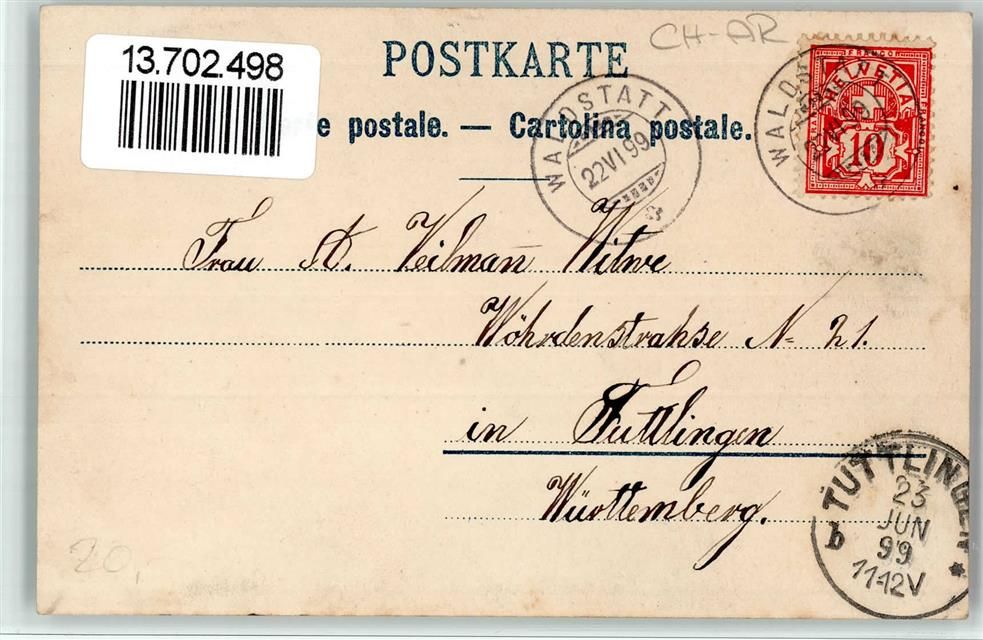 13.702.498
CH-AR
POSTKARTE
e postale. — Cartolina postale.
WALDSTATT
22 VI 99
FRANCO
HELVETIA
10
WALDSTATT
Frau A. Veilman̄ Witwe
Wöhrdenstrahse N= 21.
in Tuttlingen
Württemberg.
TUTTLINGEN
23
JUN
b 99 *
11-12V
20,